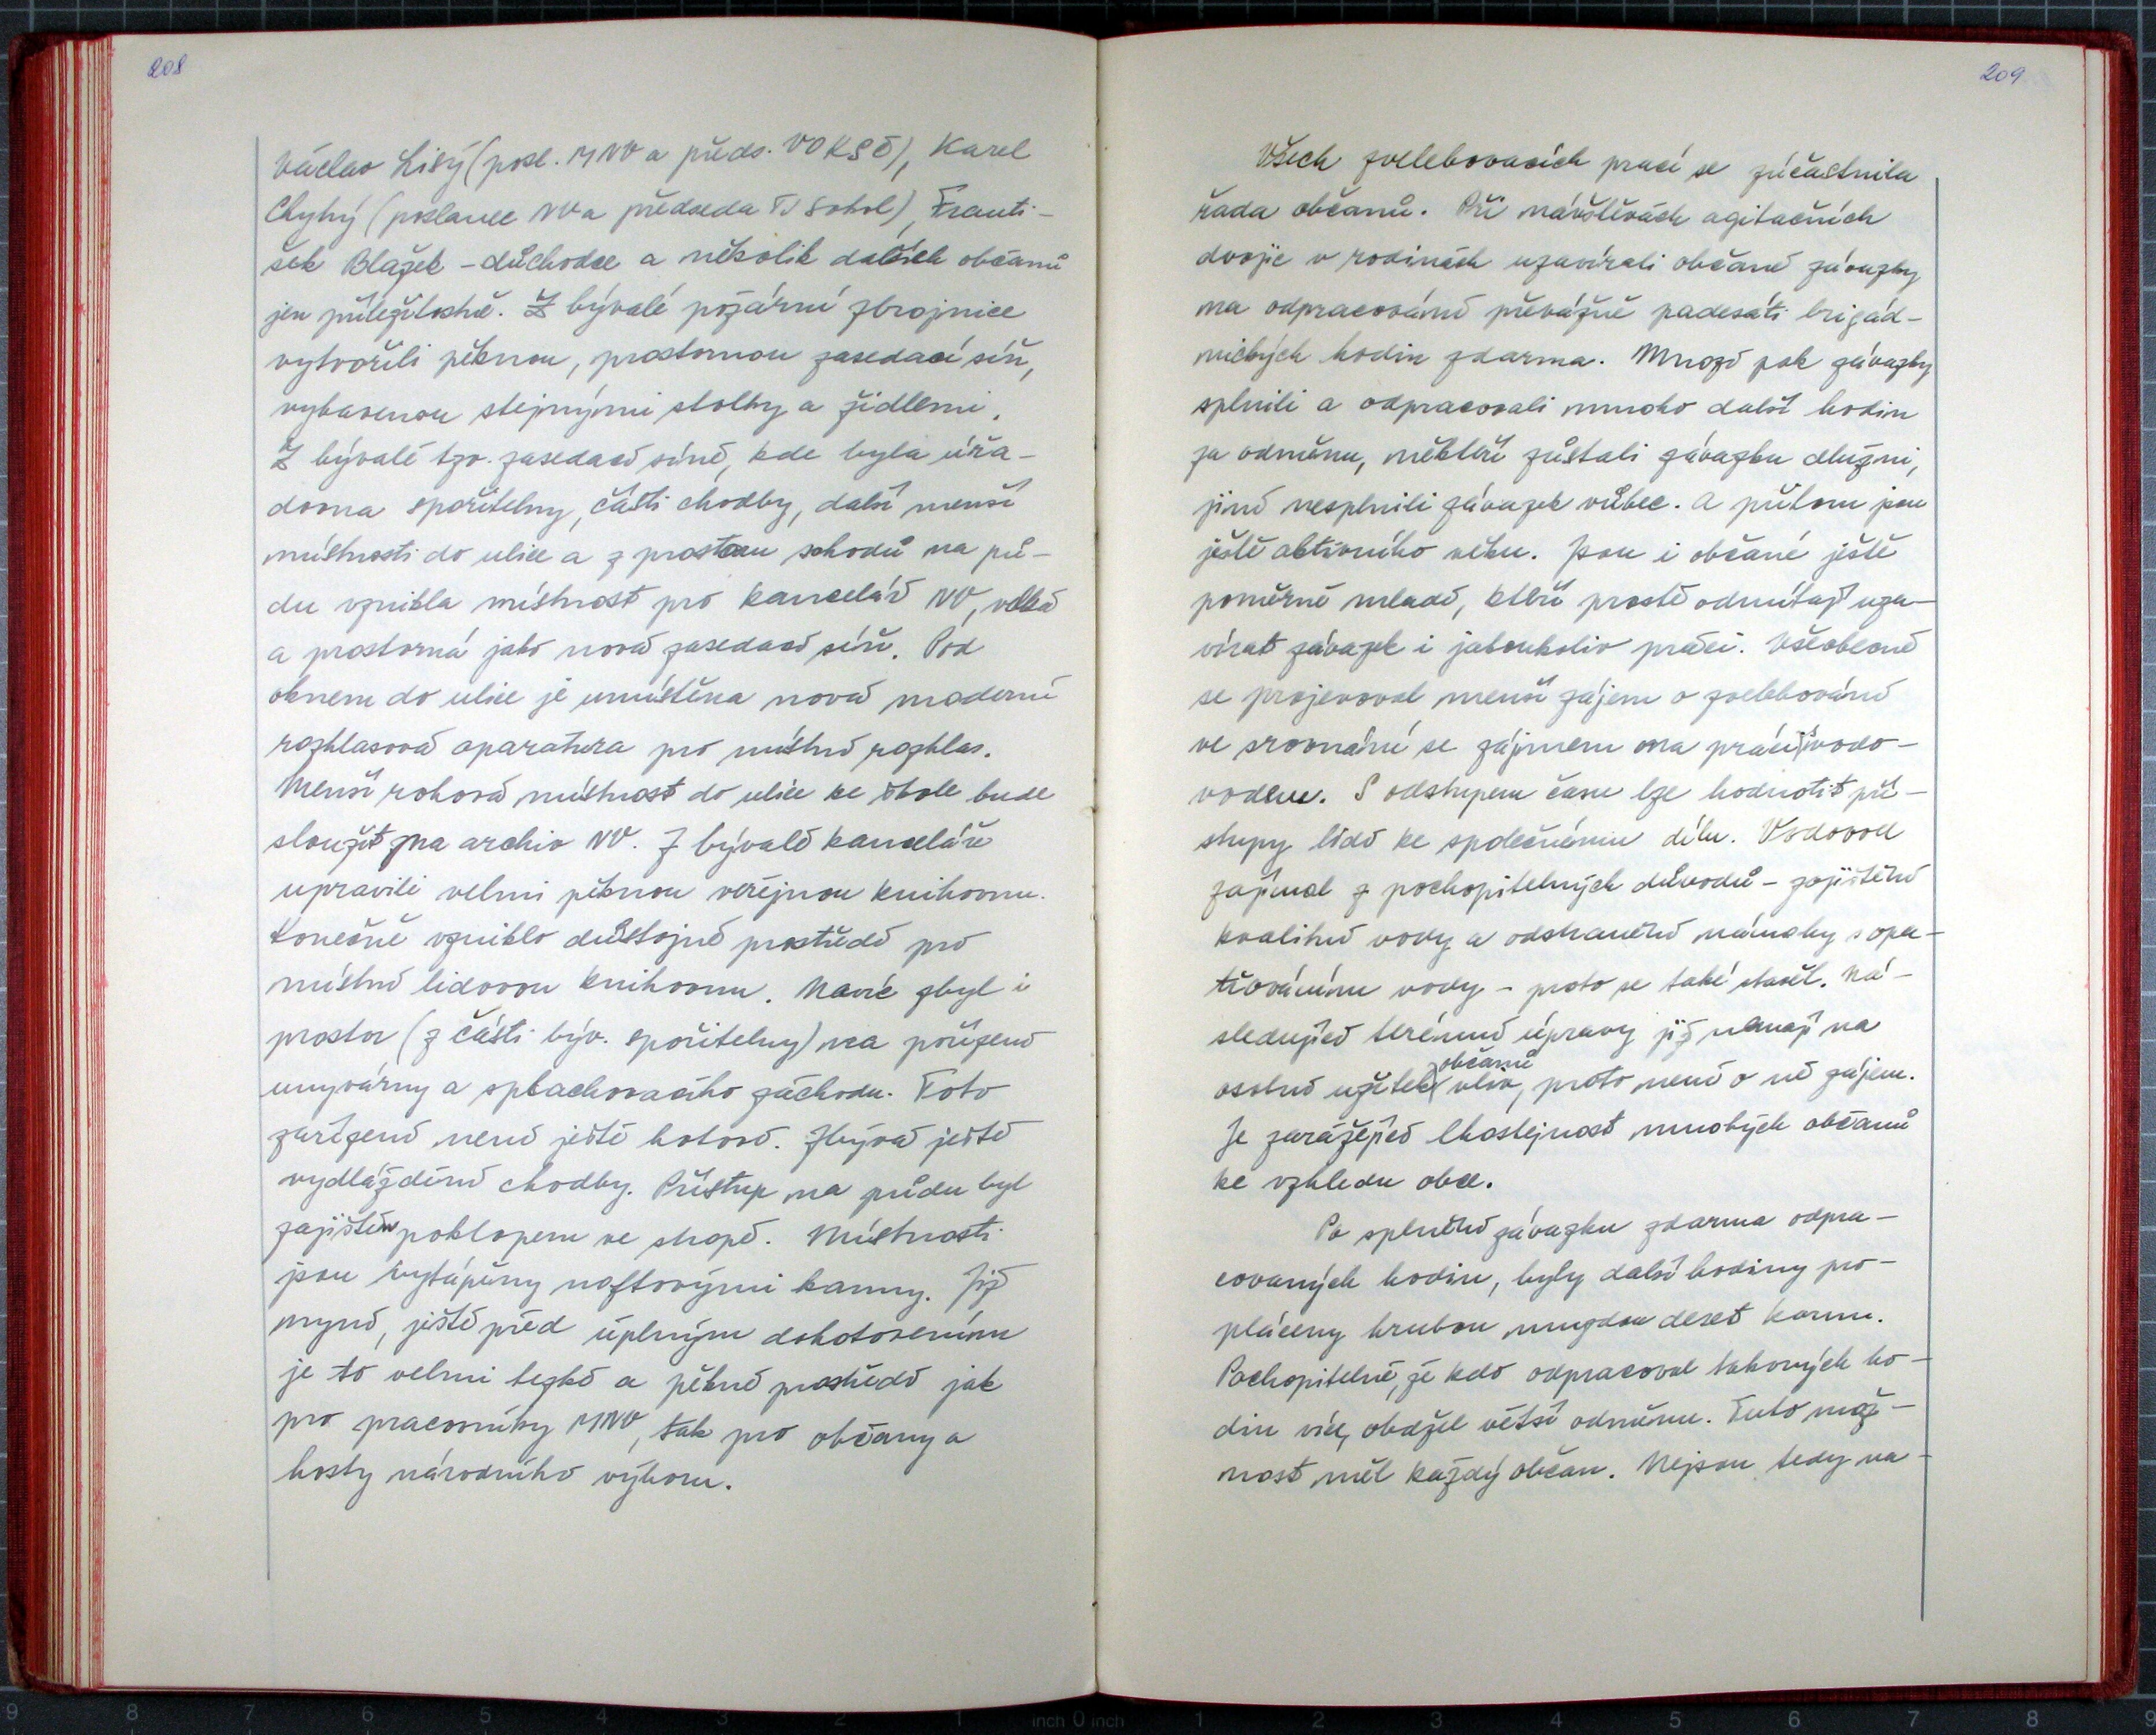 208
Václav Lisý (posl. MNV a předs. VO KSČ), Karel
Chytrý (poslanec NV a předseda TJ Sokol), Franti-
šek Blažek - důchodce a několik dalších občanů
jen příležitostně. Z bývalé požární zbrojnice
vytvořili pěknou, prostornou zasedací síň,
vybavenou stejnými stolky a židlemi.
Z bývalé tzv. zasedací síně, kde byla úřa-
dovna spořitelny, části chodby, další menší
místnosti do ulice a z prostoru schodů na pů-
du vznikla místnost pro kancelář NV, velká
a prostorná jako nová zasedací síň. Pod
oknem do ulice je umístěna nová moderní
rozhlasová aparatura pro místní rozhlas.
Menší rohová místnost do ulice ke škole bude
sloužit na archiv NV. Z bývalé kanceláře
upravili velmi pěknou veřejnou knihovnu.
Konečně vzniklo důstojné prostředí pro
místní lidovou knihovnu. Navíc zbyl i
prostor (z části býv. spořitelny) na pořízení
umyvárny a splachovacího záchodu. Toto
zařízení není ještě hotové. Zbývá ještě
vydláždění chodby. Přístup na půdu byl
zajištěn poklopem ve stropě. Místnosti
jsou vytápěny naftovými kamny. Již
nyní, ještě před úplným dohotovením
je to velmi hezké a pěkné prostředí jak
pro pracovníky MNV, tak pro občany a
hosty národního výboru.
209
Všech zvelebovacích prací se zúčastnila
řada občanů. Při návštěvách agitačních
dvojic v rodinách uzavírali občané závazky
na odpracování převážně padesáti brigád-
nických hodin zdarma. Mnozí pak závazky
splnili a odpracovali mnoho další hodin
za odměnu, někteří zůstali závazku dlužni,
jiní nesplnili závazek vůbec. A přitom jsou
ještě aktivního věku. Jsou i občané ještě
poměrně mladí, kteří prostě odmítají uza-
vírat závazek i jakoukoliv práci. Všeobecně
se projevoval menší zájem o zvelebování
ve srovnání se zájmem na práci vodo-
vodem. S odstupem času lze hodnotit pří-
stupy lidí ke společnému dílu. Vodovod
zajímal z pochopitelných důvodů - zajištění
kvalitní vody a odstranění námahy s opa-
třováním vody - proto se také stavěl. Ná-
sledující terénní úpravy již nemají na
osobní užitek občanů vliv, proto není o ně zájem.
Je zarážející lhostejnost mnohých občanů
ke vzhledu obce.
Po splnění závazku zdarma odpra-
covaných hodin, byly další hodiny pro-
pláceny hrubou mzdou deset korun.
Pochopitelně, že kdo odpracoval takových ho-
din více, obdržel větší odměnu. Tuto mož-
nost měl každý občan. Nejsou tedy na-